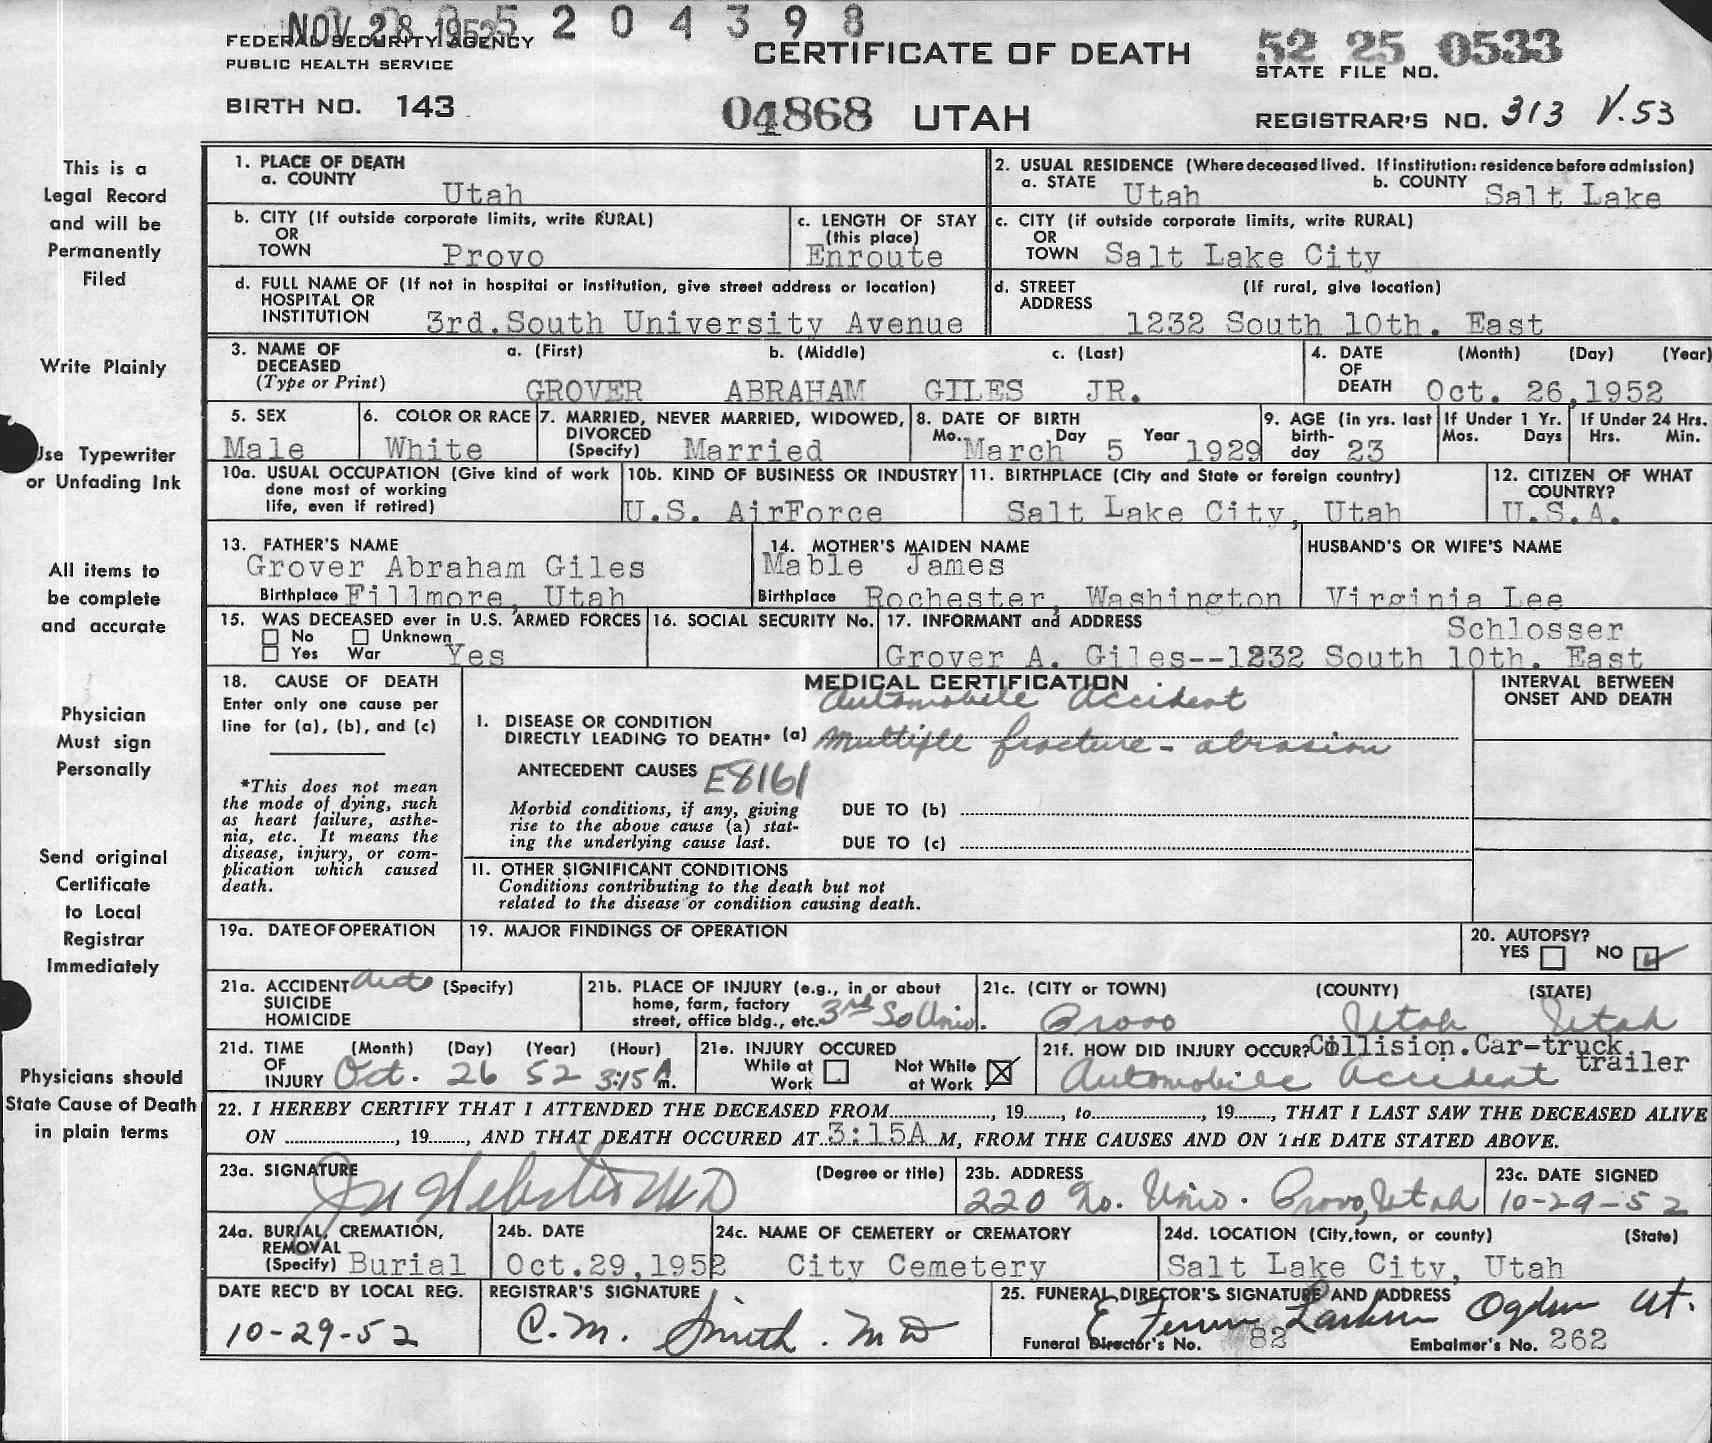 NOV 28 1952 5 2 0 4 3 9 8
FEDERAL SECURITY AGENCY
PUBLIC HEALTH SERVICE
CERTIFICATE OF DEATH
52 25 0533
STATE FILE NO.
BIRTH NO. 143
04868 UTAH
REGISTRAR'S NO. 313 V.53
This is a
Legal Record
and will be
Permanently
Filed
Write Plainly
Use Typewriter
or Unfading Ink
All items to
be complete
and accurate
Physician
Must sign
Personally
Send original
Certificate
to Local
Registrar
Immediately
Physicians should
State Cause of Death
in plain terms
1. PLACE OF DEATH
a. COUNTY Utah
2. USUAL RESIDENCE (Where deceased lived. If institution: residence before admission)
a. STATE Utah b. COUNTY Salt Lake
b. CITY (If outside corporate limits, write RURAL)
OR
TOWN Provo
c. LENGTH OF STAY
(this place)
Enroute
c. CITY (if outside corporate limits, write RURAL)
OR
TOWN Salt Lake City
d. FULL NAME OF (If not in hospital or institution, give street address or location)
HOSPITAL OR
INSTITUTION 3rd.South University Avenue
d. STREET (If rural, give location)
ADDRESS
1232 South 10th. East
3. NAME OF DECEASED (Type or Print)
a. (First) b. (Middle) c. (Last)
GROVER ABRAHAM GILES JR.
4. DATE OF DEATH (Month) (Day) (Year)
Oct. 26,1952
5. SEX
Male
6. COLOR OR RACE
White
7. MARRIED, NEVER MARRIED, WIDOWED,
DIVORCED
(Specify) Married
8. DATE OF BIRTH
Mo. Day Year
March 5 1929
9. AGE (in yrs. last
birth-
day 23
If Under 1 Yr.
Mos. Days
If Under 24 Hrs.
Hrs. Min.
10a. USUAL OCCUPATION (Give kind of work
done most of working
life, even if retired)
10b. KIND OF BUSINESS OR INDUSTRY
U.S. AirForce
11. BIRTHPLACE (City and State or foreign country)
Salt Lake City, Utah
12. CITIZEN OF WHAT
COUNTRY?
U.S.A.
13. FATHER'S NAME
Grover Abraham Giles
Birthplace Fillmore, Utah
14. MOTHER'S MAIDEN NAME
Mable James
Birthplace Rochester, Washington
HUSBAND'S OR WIFE'S NAME
Virginia Lee
Schlosser
15. WAS DECEASED ever in U.S. ARMED FORCES
No Unknown
Yes War Yes
16. SOCIAL SECURITY No.
17. INFORMANT and ADDRESS
Grover A. Giles--1232 South 10th. East
18. CAUSE OF DEATH
Enter only one cause per
line for (a), (b), and (c)
*This does not mean
the mode of dying, such
as heart failure, asthe-
nia, etc. It means the
disease, injury, or com-
plication which caused
death.
MEDICAL CERTIFICATION
Automobile Accident
I. DISEASE OR CONDITION
DIRECTLY LEADING TO DEATH* (a) Multiple fracture - abrasion
ANTECEDENT CAUSES E8161
Morbid conditions, if any, giving
rise to the above cause (a) stat-
ing the underlying cause last.
DUE TO (b)
DUE TO (c)
II. OTHER SIGNIFICANT CONDITIONS
Conditions contributing to the death but not
related to the disease or condition causing death.
INTERVAL BETWEEN
ONSET AND DEATH
19a. DATE OF OPERATION
19. MAJOR FINDINGS OF OPERATION
20. AUTOPSY?
YES NO
21a. ACCIDENT Auto (Specify)
SUICIDE
HOMICIDE
21b. PLACE OF INJURY (e.g., in or about
home, farm, factory
street, office bldg., etc. 3rd So Univ.
21c. (CITY or TOWN) (COUNTY) (STATE)
Provo Utah Utah
21d. TIME OF INJURY (Month) (Day) (Year) (Hour)
Oct. 26 52 3:15 A m.
21e. INJURY OCCURED
While at Work
Not While at Work
21f. HOW DID INJURY OCCUR? Collision.Car-truck
trailer
Automobile Accident
22. I HEREBY CERTIFY THAT I ATTENDED THE DECEASED FROM..., 19..., to..., 19..., THAT I LAST SAW THE DECEASED ALIVE
ON ..., 19..., AND THAT DEATH OCCURED AT 3:15A M, FROM THE CAUSES AND ON THE DATE STATED ABOVE.
23a. SIGNATURE (Degree or title)
Webster MD
23b. ADDRESS
220 No. Univ. Provo, Utah
23c. DATE SIGNED
10-29-52
24a. BURIAL, CREMATION,
REMOVAL
(Specify) Burial
24b. DATE
Oct.29,1952
24c. NAME OF CEMETERY or CREMATORY
City Cemetery
24d. LOCATION (City, town, or county) (State)
Salt Lake City, Utah
DATE REC'D BY LOCAL REG.
10-29-52
REGISTRAR'S SIGNATURE
C.M. Smith. MD
25. FUNERAL DIRECTOR'S SIGNATURE AND ADDRESS
E Larkin Ogden Ut.
Funeral Director's No. 82 Embalmer's No. 262